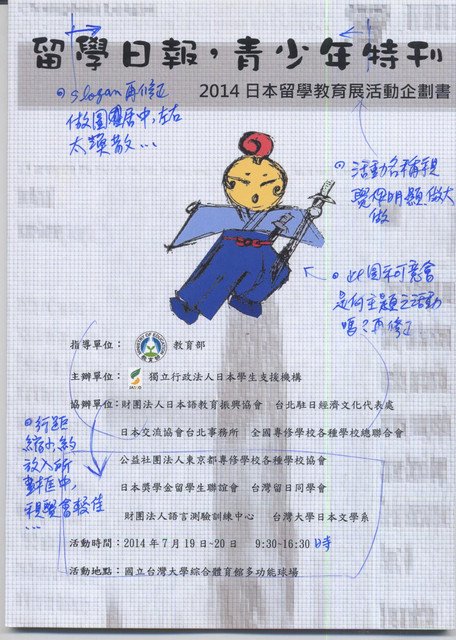 留學日報，青少年特刊
2014 日本留學教育展活動企劃書
slogan再修正
做圖置居中，左右
太鬆散...
活動名稱視
覺保明顯做大
做
此圖未可意會
是何主題之活動
嗎？再修正
指導單位：教育部
主辦單位：獨立行政法人日本學生支援機構
協辦單位：財團法人日本語教育振興協會 台北駐日經濟文化代表處
日本交流協會台北事務所 全國專修學校各種學校總聯合會
公益社團法人東京都專修學校各種學校協會
日本獎學金留學生聯誼會 台灣留日同學會
財團法人語言測驗訓練中心 台灣大學日本文學系
活動時間：2014 年 7 月 19 日~20 日 9:30~16:30 時
活動地點：國立台灣大學綜合體育館多功能球場
行距
縮小，約
放入所
畫框中，
視覺會較佳
...